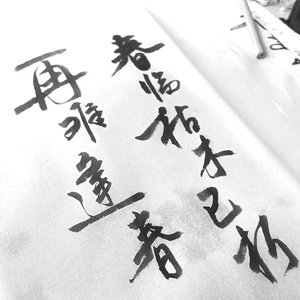 春临枯木已朽
再难逢春